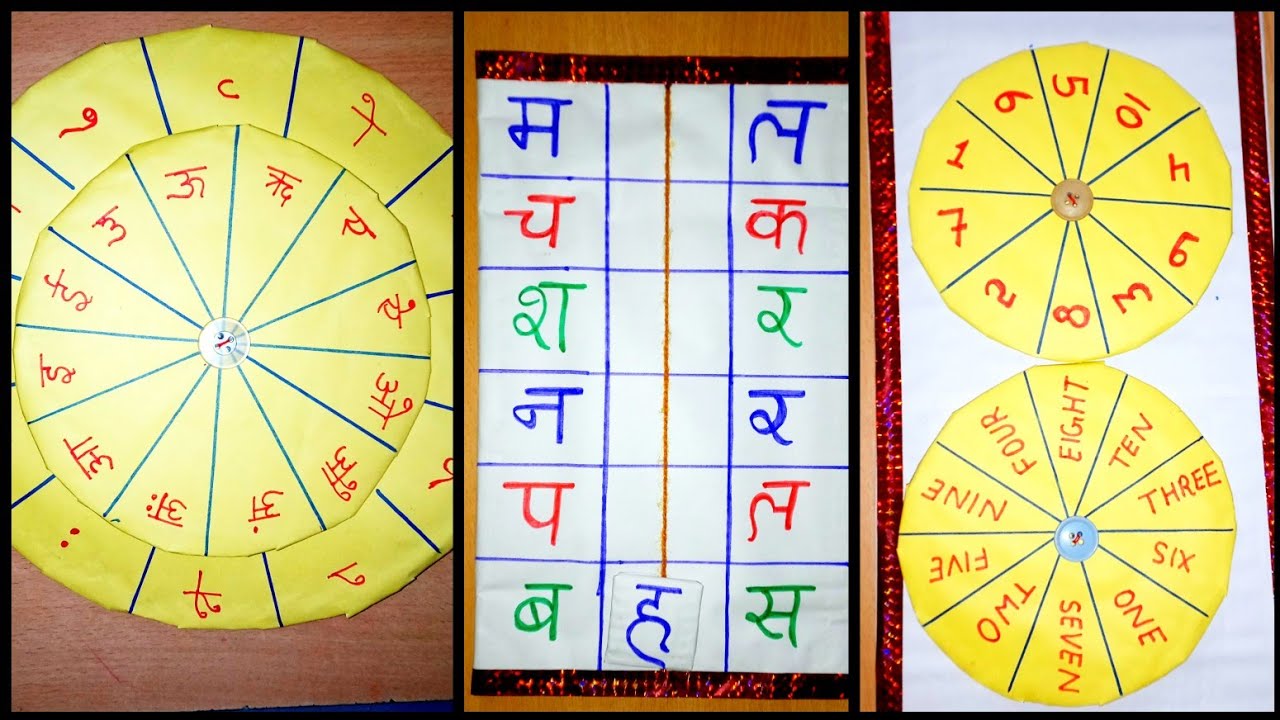 ऊ
ऋ
ए
ऐ
ओ
औ
अं
अः
आ
इ
ई
उ
म ल
च क
श र
न र
प ल
ब ह स
5
10
4
9
3
8
2
7
1
6
EIGHT
TEN
THREE
SIX
ONE
SEVEN
TWO
FIVE
NINE
FOUR